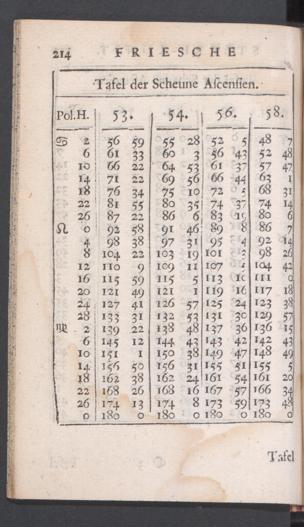 214 FRIESCHE
Tafel der Scheune Ascensien.
Pol.H. 53. 54. 56. 58.
♋ 2 56 59 55 28 52 5 48 7
6 61 33 60 3 56 43 52 48
10 66 22 64 53 61 37 57 47
14 71 22 69 56 66 44 63 1
18 76 34 75 10 72 68 31
22 81 55 80 35 74 37 74 14
26 87 22 86 6 83 19 80 6
♌ 0 92 58 91 46 89 8 86 7
4 98 38 97 31 95 4 92 14
8 104 22 103 19 101 98 26
12 110 9 109 11 107 104 42
16 115 59 115 5 113 111 0
20 121 49 121 1 119 16 117 18
24 127 41 126 57 125 24 123 38
28 133 31 132 53 131 30 129 57
♍ 2 139 22 138 48 137 36 136 15
6 145 12 144 43 143 42 142 43
10 151 1 150 38 149 47 148 49
14 156 50 156 31 155 51 155 5
18 162 38 162 24 161 54 161 20
22 168 26 168 16 167 57 166 34
26 174 13 174 8 173 59 173 48
0 180 0 180 0 180 0 180 0
Tafel